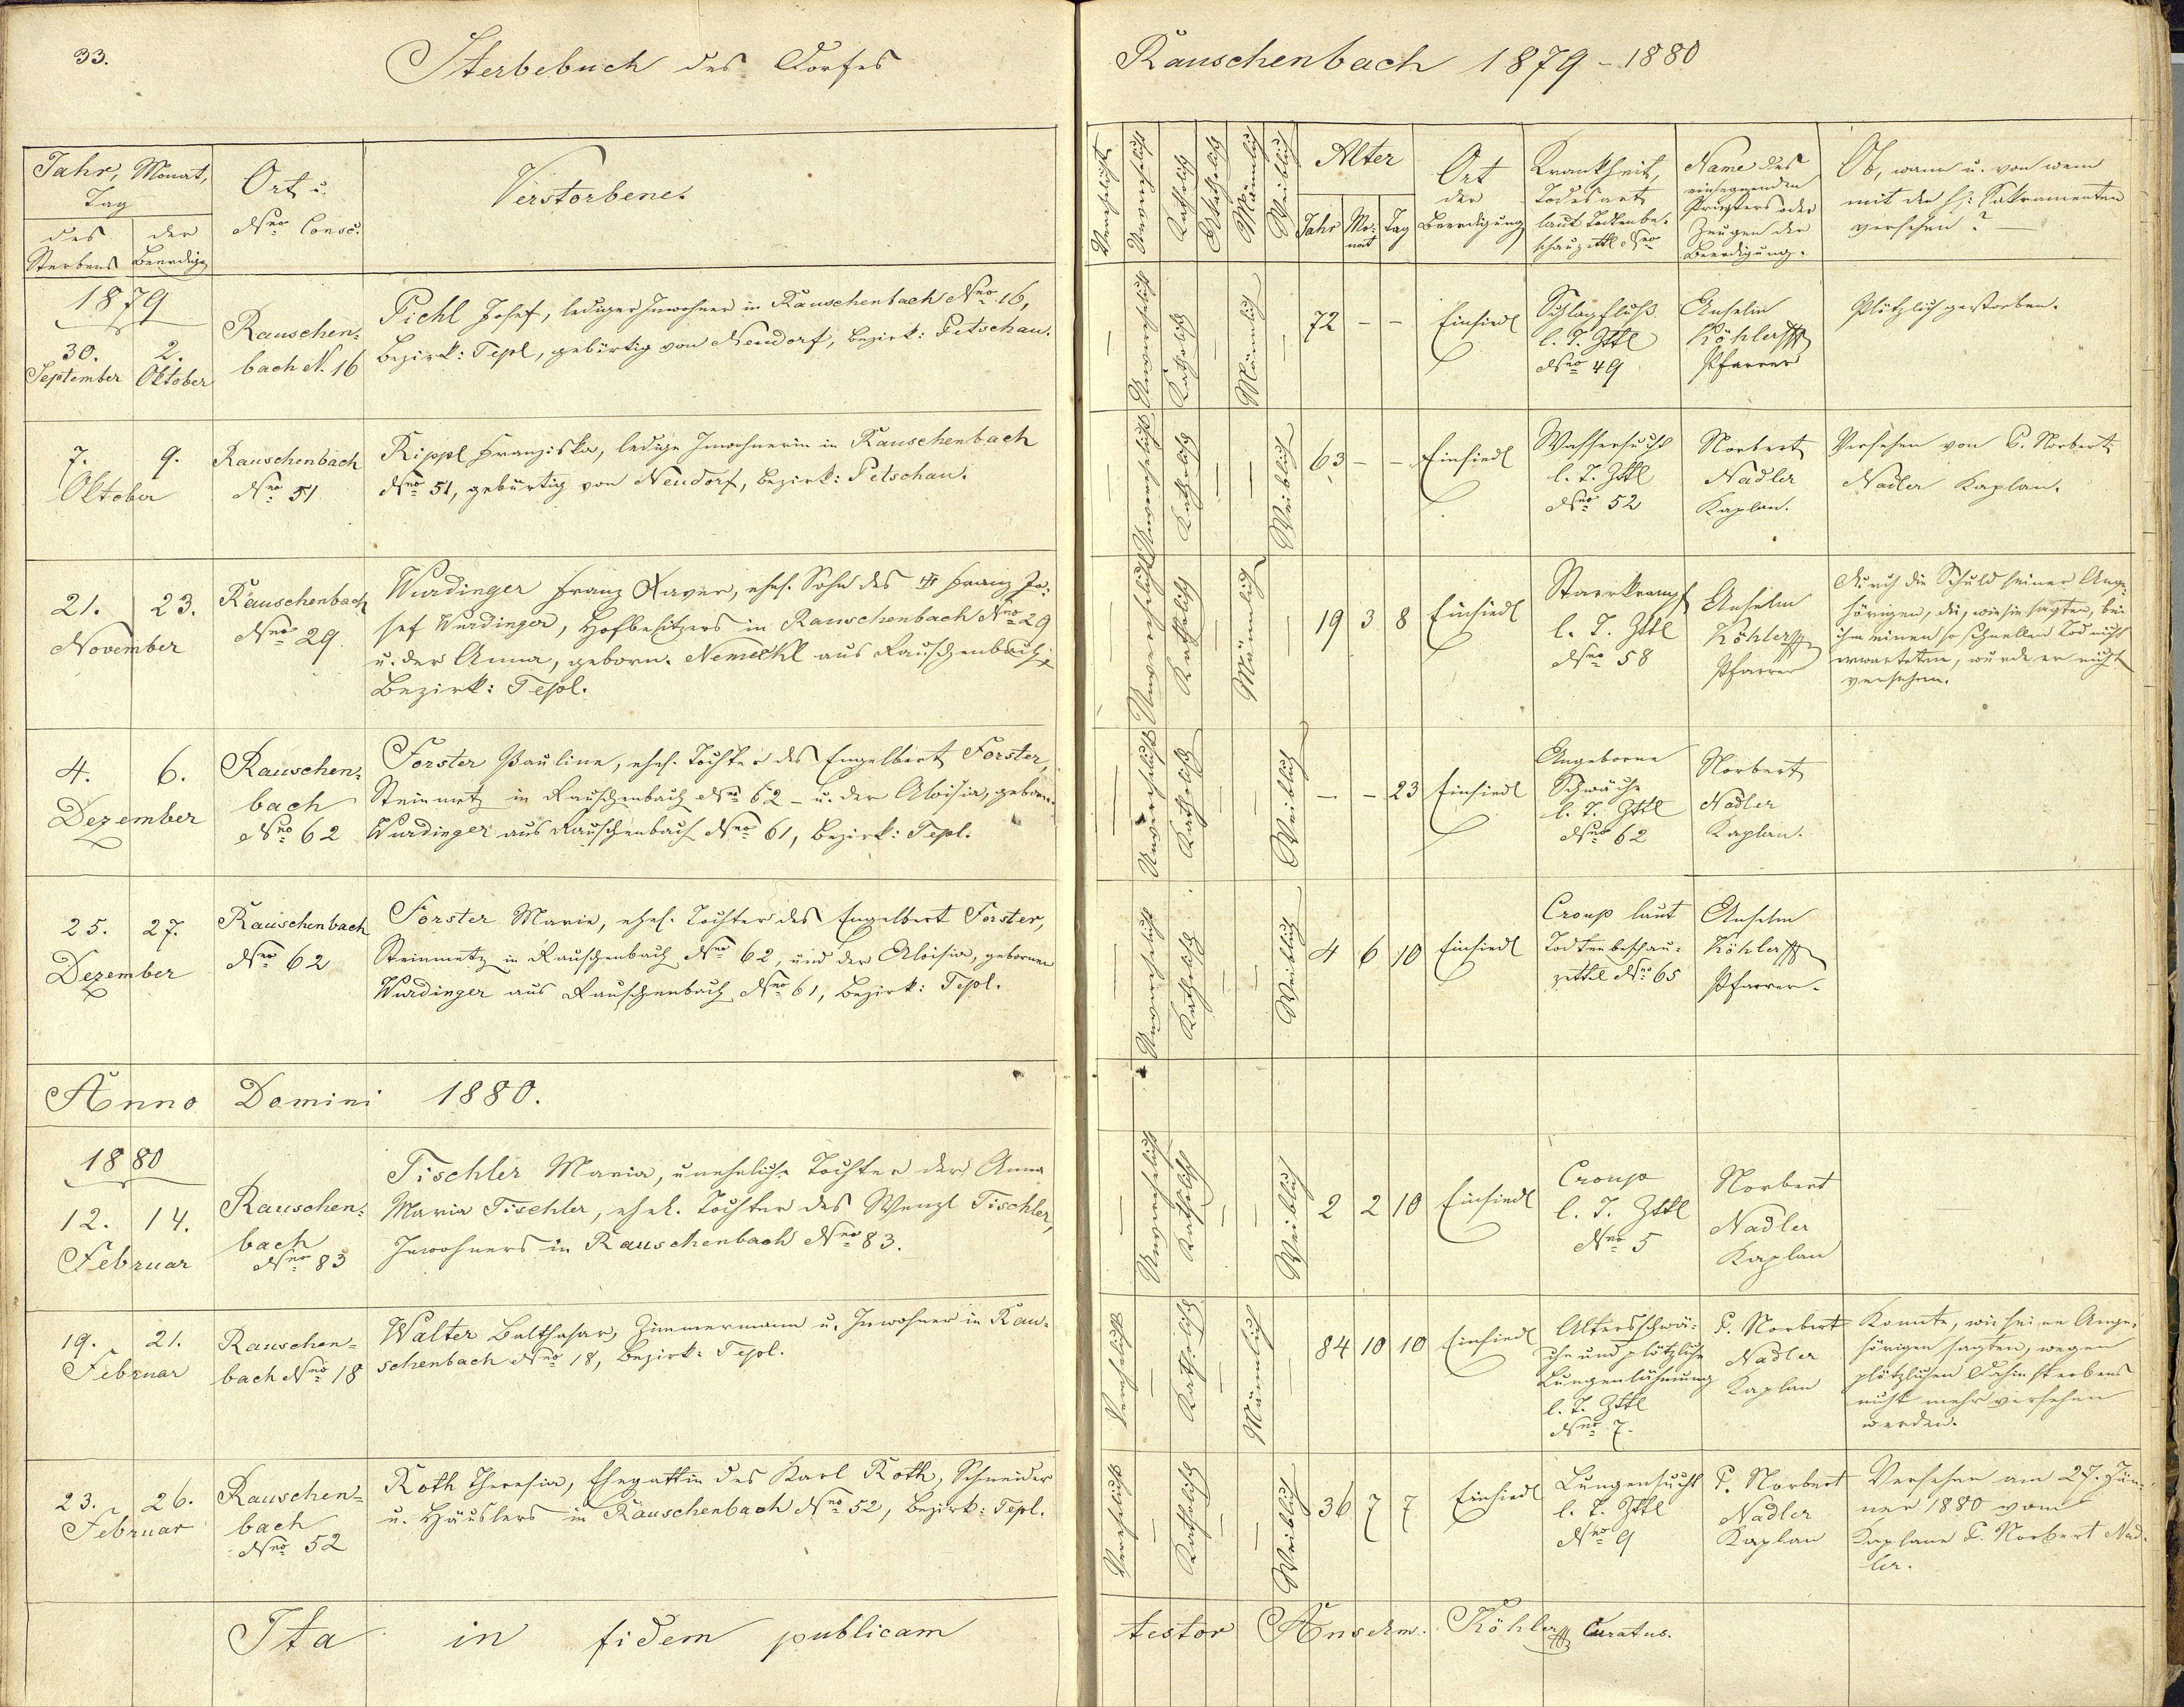 33.
Sterbebuch des Dorfes
Rauschenbach 1879 - 1880
Jahr, Monat,
Tag
des
Sterbens
der
Beerdigg
Ort u.
Nro Consc.
Verstorbene.
Verehelicht
Unverehelicht
Katholisch
Akatholisch
Männlich
Weiblich
Alter
Jahr
Mo-
nat
Tag
Ort
der
Beerdigung
Krankheit,
Todesart
laut Todtenbe-
schauzettl Nro
Name des
einsegnenden
Priesters oder
Zeugen der
Beerdigung.
Ob, wann u. von wem
mit den h: Sakramenten
versehen? —
1879
30.
September
2.
Oktober
Rauschen-
bach N. 16
Pichl Josef, lediger Inwohner in Rauschenbach Nro 16,
Bezirk: Tepl, gebürtig von Neudorf, Bezirk: Petschau.
—
Unverehelicht
Katholisch
—
Männlich
—
72 - -
Einsiedl
Schlagfluß
l. T. Zttl
Nro 49
Anselm
Köhler
Pfarrer
Plötzlich gestorben.
7. 9.
Oktober
Rauschenbach
Nro 51
Rippl Franziska, ledige Inwohnerin in Rauschenbach
Nro 51, gebürtig von Neudorf, Bezirk: Petschau.
—
Unverehelicht
Katholisch
—
—
Weiblich
63 - -
Einsiedl
Wassersucht
l. T. Zttl
Nro 52
Norbert
Nadler
Kaplan.
Versehen von P. Norbert
Nadler Kaplan.
21. 23.
November
Rauschenbach
Nro 29
Wurdinger Franz Xaver, ehel. Sohn des Franz Jo-
sef Wurdinger, Hofbesitzers in Rauschenbach Nro 29
u. der Anna, geborn. Nemeckl aus Rauschenbach,
Bezirk: Tepl.
—
Unverehelicht
Katholisch
—
Männlich
—
19 3 8
Einsiedl
Starrkrampf
l. T. Zttl
Nro 58
Anselm
Köhler
Pfarrer
Durch die Schuld seiner Ange-
hörigen, die, wie sie sagten, bei
ihm einen so schnellen Tod nicht
erwarteten, wurde er nicht
versehen.
4. 6.
Dezember
Rauschen-
bach
Nro 62
Forster Pauline, ehel. Tochter des Engelbert Forster,
Steinmetz in Rauschenbach Nro 62 - u. der Aloisia, geborn.
Wurdinger aus Rauschenbach Nro 61, Bezirk: Tepl.
—
Unverehelicht
Katholisch
—
—
Weiblich
- - 23
Einsiedl
Angeborne
Schwäche
l. T. Zttl
Nro 62
Norbert
Nadler
Kaplan.
25. 27.
Dezember
Rauschenbach
Nro 62
Forster Marie, ehel. Tochter des Engelbert Forster,
Steinmetz in Rauschenbach Nro 62, und der Aloisia, gebornen
Wurdinger aus Rauschenbach Nro 61, Bezirk: Tepl.
—
Unverehelicht
Katholisch
—
—
Weiblich
4 6 10
Einsiedl
Croup laut
Todtenbeschau-
zettel Nro 65
Anselm
Köhler
Pfarrer.
Anno Domini 1880.
1880
12. 14.
Februar
Rauschen-
bach
Nro 83
Tischler Maria, uneheliche Tochter der Anna
Maria Tischler, ehel. Tochter des Wenzl Tischler,
Inwohners in Rauschenbach Nro 83.
—
Unverehelicht
Katholisch
—
—
Weiblich
2 2 10
Einsiedl
Croup
l. T. Zttl
Nro 5
Norbert
Nadler
Kaplan
19. 21.
Februar
Rauschen-
bach Nro 18
Walter Balthasar, Zimmermann u. Inwohner in Rau-
schenbach Nro 18, Bezirk: Tepl.
Verehelicht
—
Katholisch
—
Männlich
—
84 10 10
Einsiedl
Altersschwä-
che und plötzliche
Lungenlähmung
l. T. Zttl
Nro 7.
P. Norbert
Nadler
Kaplan
Konnte, wie seine Ange-
hörigen sagten, wegen
plötzlichen Dahinsterbens
nicht mehr versehen
werden.
23. 26.
Februar
Rauschen-
bach
Nro 52
Roth Theresia, Ehegattin des Karl Roth, Schneider
u. Häuslers in Rauschenbach Nro 52, Bezirk: Tepl.
Verehelicht
—
Katholisch
—
—
Weiblich
36 7 7
Einsiedl
Lungensucht
l. T. Zttl
Nro 9
P. Norbert
Nadler
Kaplan
Versehen am 27. Jän-
ner 1880 vom
Kaplane P. Norbert Nad-
ler.
Ita in fidem publicam
testor Anselm Köhler Curatus.